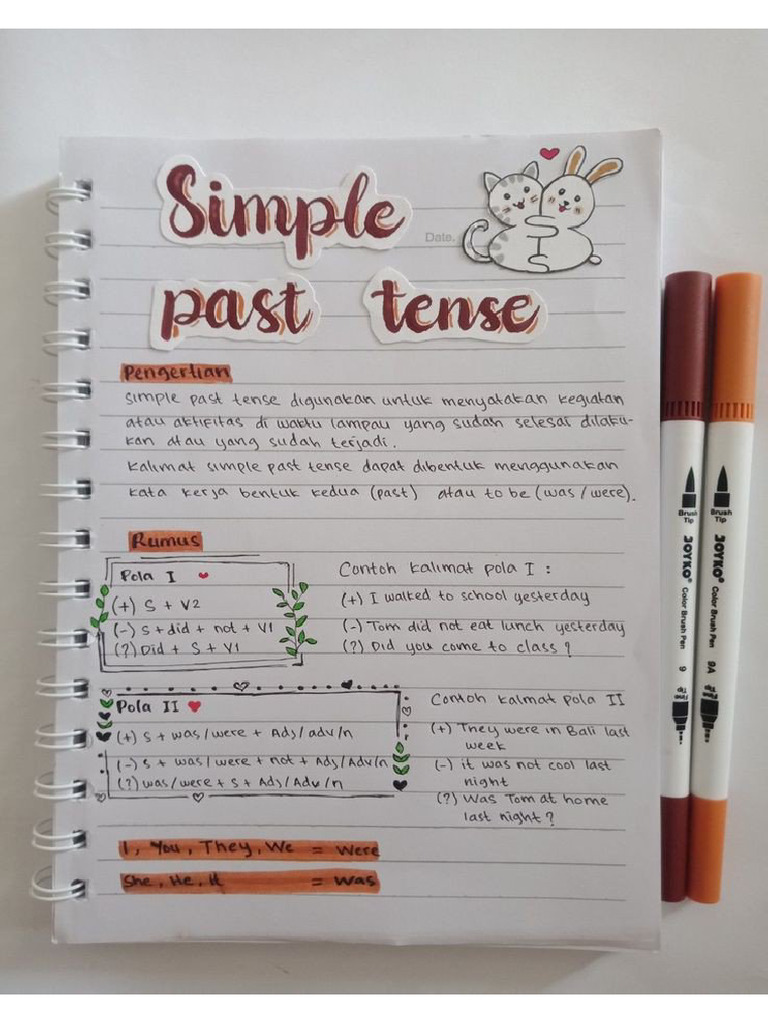 Simple
Date.
past tense
Pengertian
simple past tense digunakan untuk menyatakan kegiatan
atau aktifitas di waktu lampau yang sudah selesai dilaku-
kan atau yang sudah terjadi.
Kalimat simple past tense dapat dibentuk menggunakan
kata kerja bentuk kedua (past) atau to be (was/were).
Rumus
Pola I
(+) S + V2
(-) S + did + not + V1
(?) Did + S + V1
Contoh kalimat pola I :
(+) I walked to school yesterday
(-) Tom did not eat lunch yesterday
(?) Did you come to class?
Pola II
(+) S + was/were + Adj/adv/n
(-) S + was/were + not + Adj/Adv/n
(?) was/were + S + Adj/Adv/n
Contoh kalmat pola II
(+) They were in Bali last
week
(-) it was not cool last
night
(?) Was Tom at home
last night?
I, You, They, We = Were
She, He, It = Was
Brush
Tip
JOYKO
Color Brush Pen
9
Fine
Tip
Brush
Tip
JOYKO
Color Brush Pen
9A
Fine
Tip